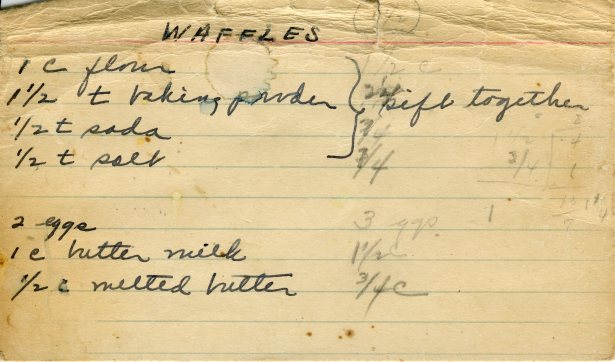 WAFFLES
1 c flour 1 1/2 c
1 1/2 t baking powder } sift together
1/2 t soda 3/4
1/2 t salt 3/4 3/4
2 eggs 3 eggs 1
1 c butter milk 1 1/2
1/2 c melted butter 3/4 c